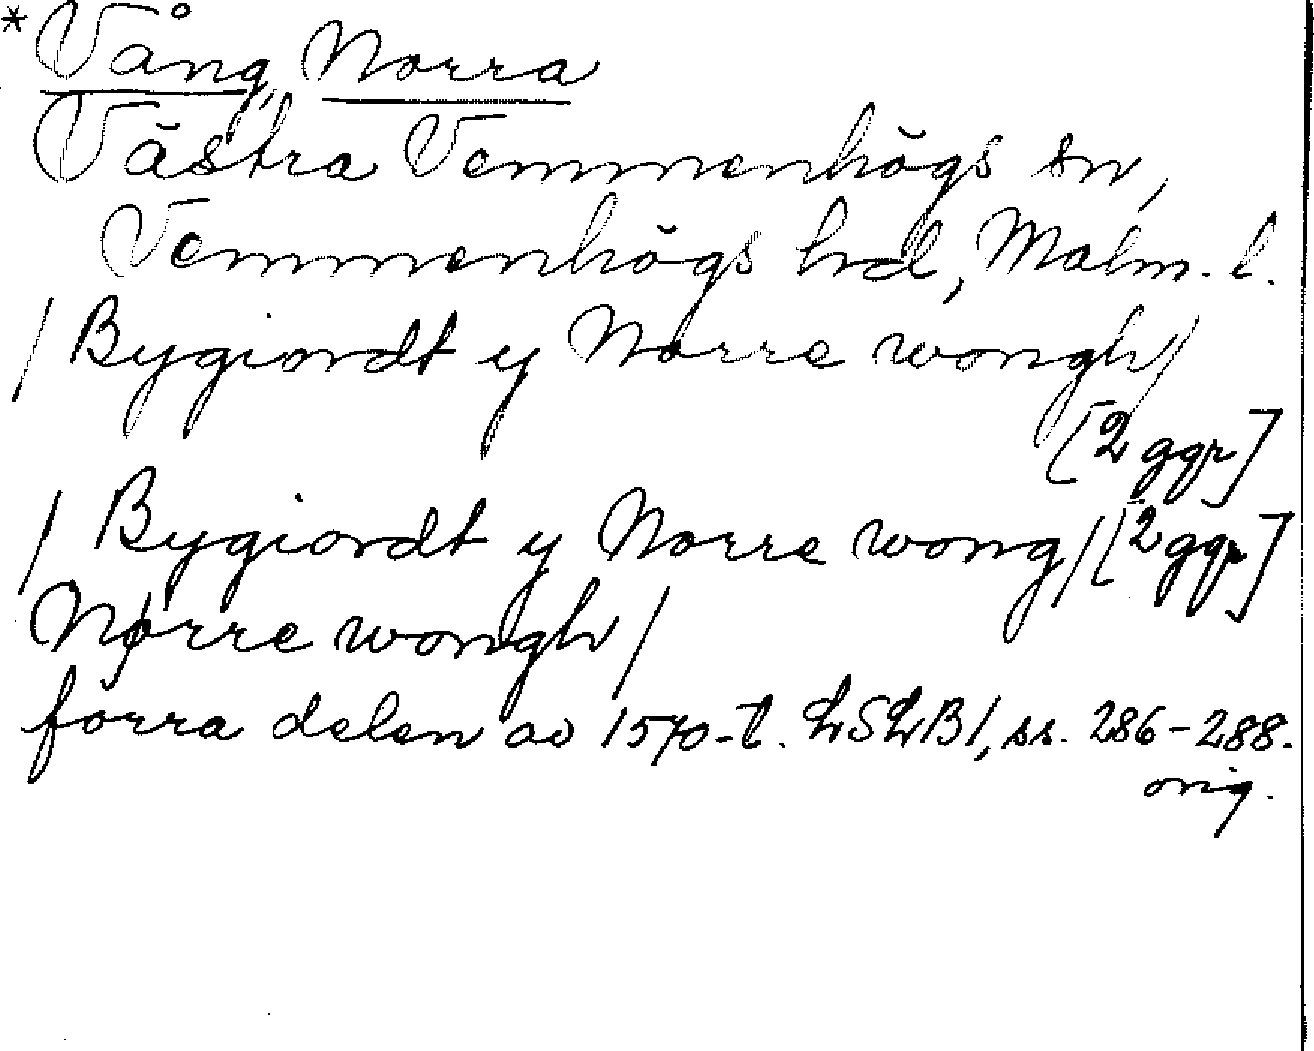 * Vång, Norra
Västra Vemmenhögs sn,
Vemmenhögs hd, Malm. l.
/ Bygiordt y Norre wongh /
[2 ggr]
/ Bygiordt y Norre wong / [2 ggr]
Nørre wongh /
förra delen av 1570-t. LSLB1, ss. 286-288.
orig.